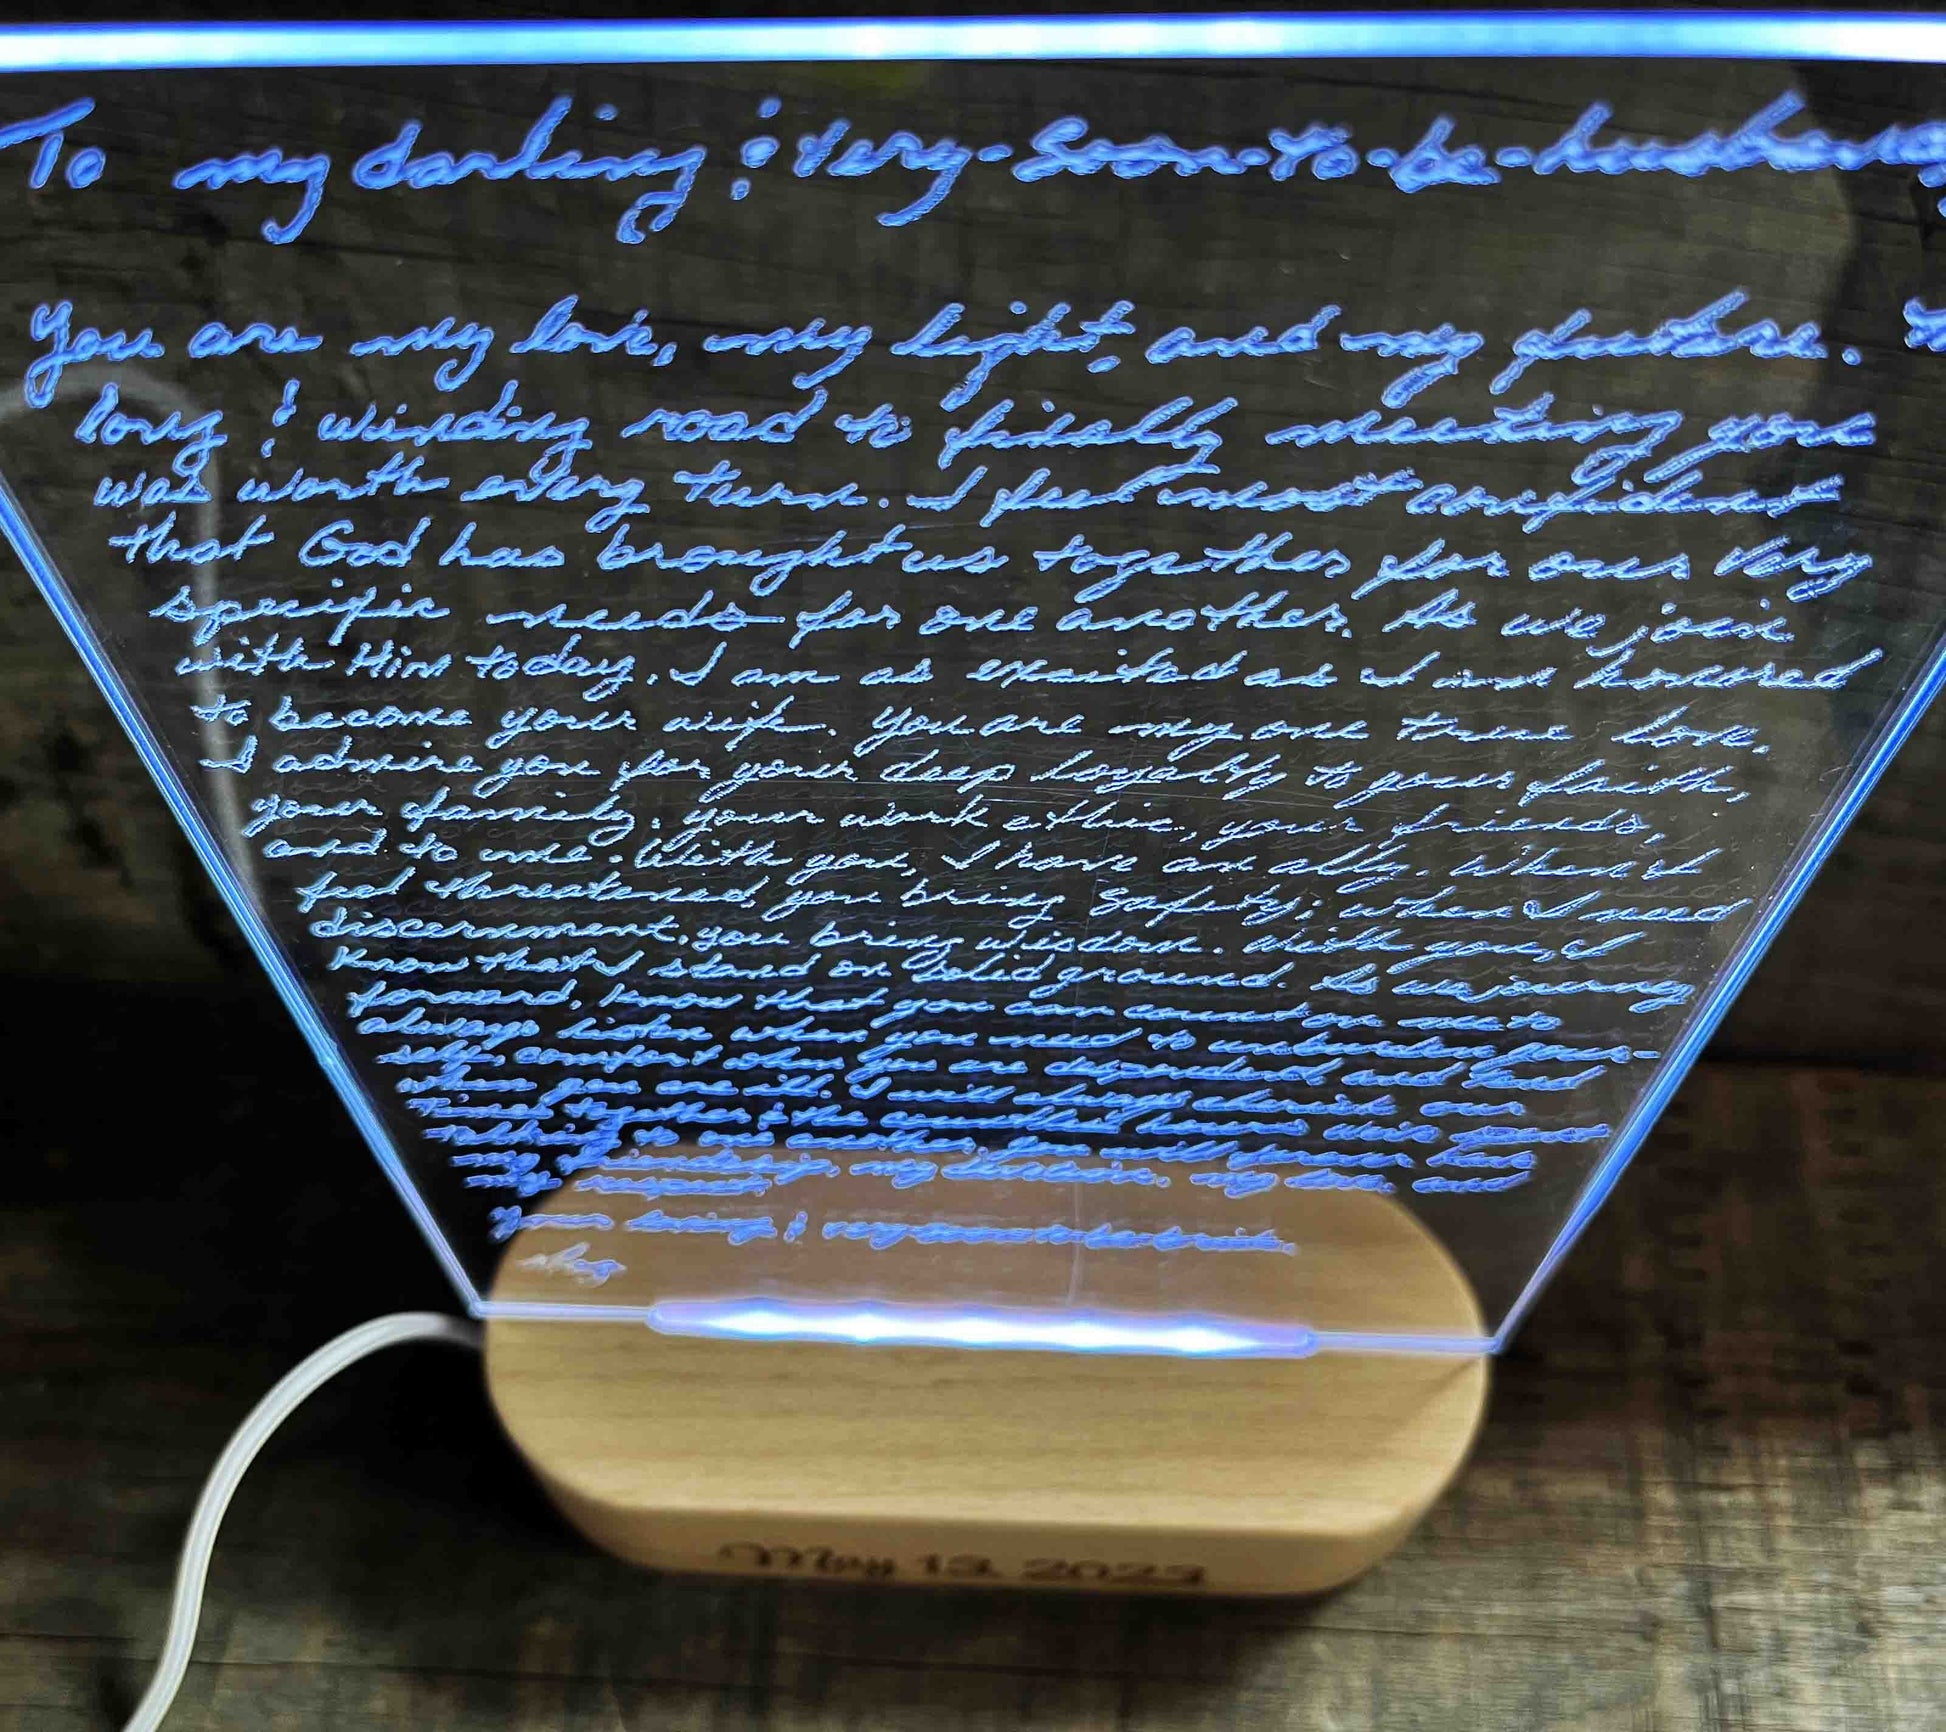 To my darling & very-soon-to-be-husband
You are my love, my light, and my future.
long & winding road to finally meeting you
was worth every turn. I feel most confident
that God has brought us together for our very
specific needs for one another. As we join
with Him today, I am as excited as I am honored
to become your wife. You are my one true love.
I admire you for your deep loyalty to your faith,
your family, your work ethic, your friends,
and to me. With you, I have an ally. When I
feel threatened, you bring safety; when I need
discernment, you bring wisdom. With you, I
know that I stand on solid ground. As we journey
forward, know that you can count on me to
always listen when you need to unburden your-
self, comfort when you are and
when you are ill. I will always cherish our
times together & the
to one another. You will forever have
my friendship, my my love and
my respect.
Your loving & very soon to be bride,
May 13, 2023